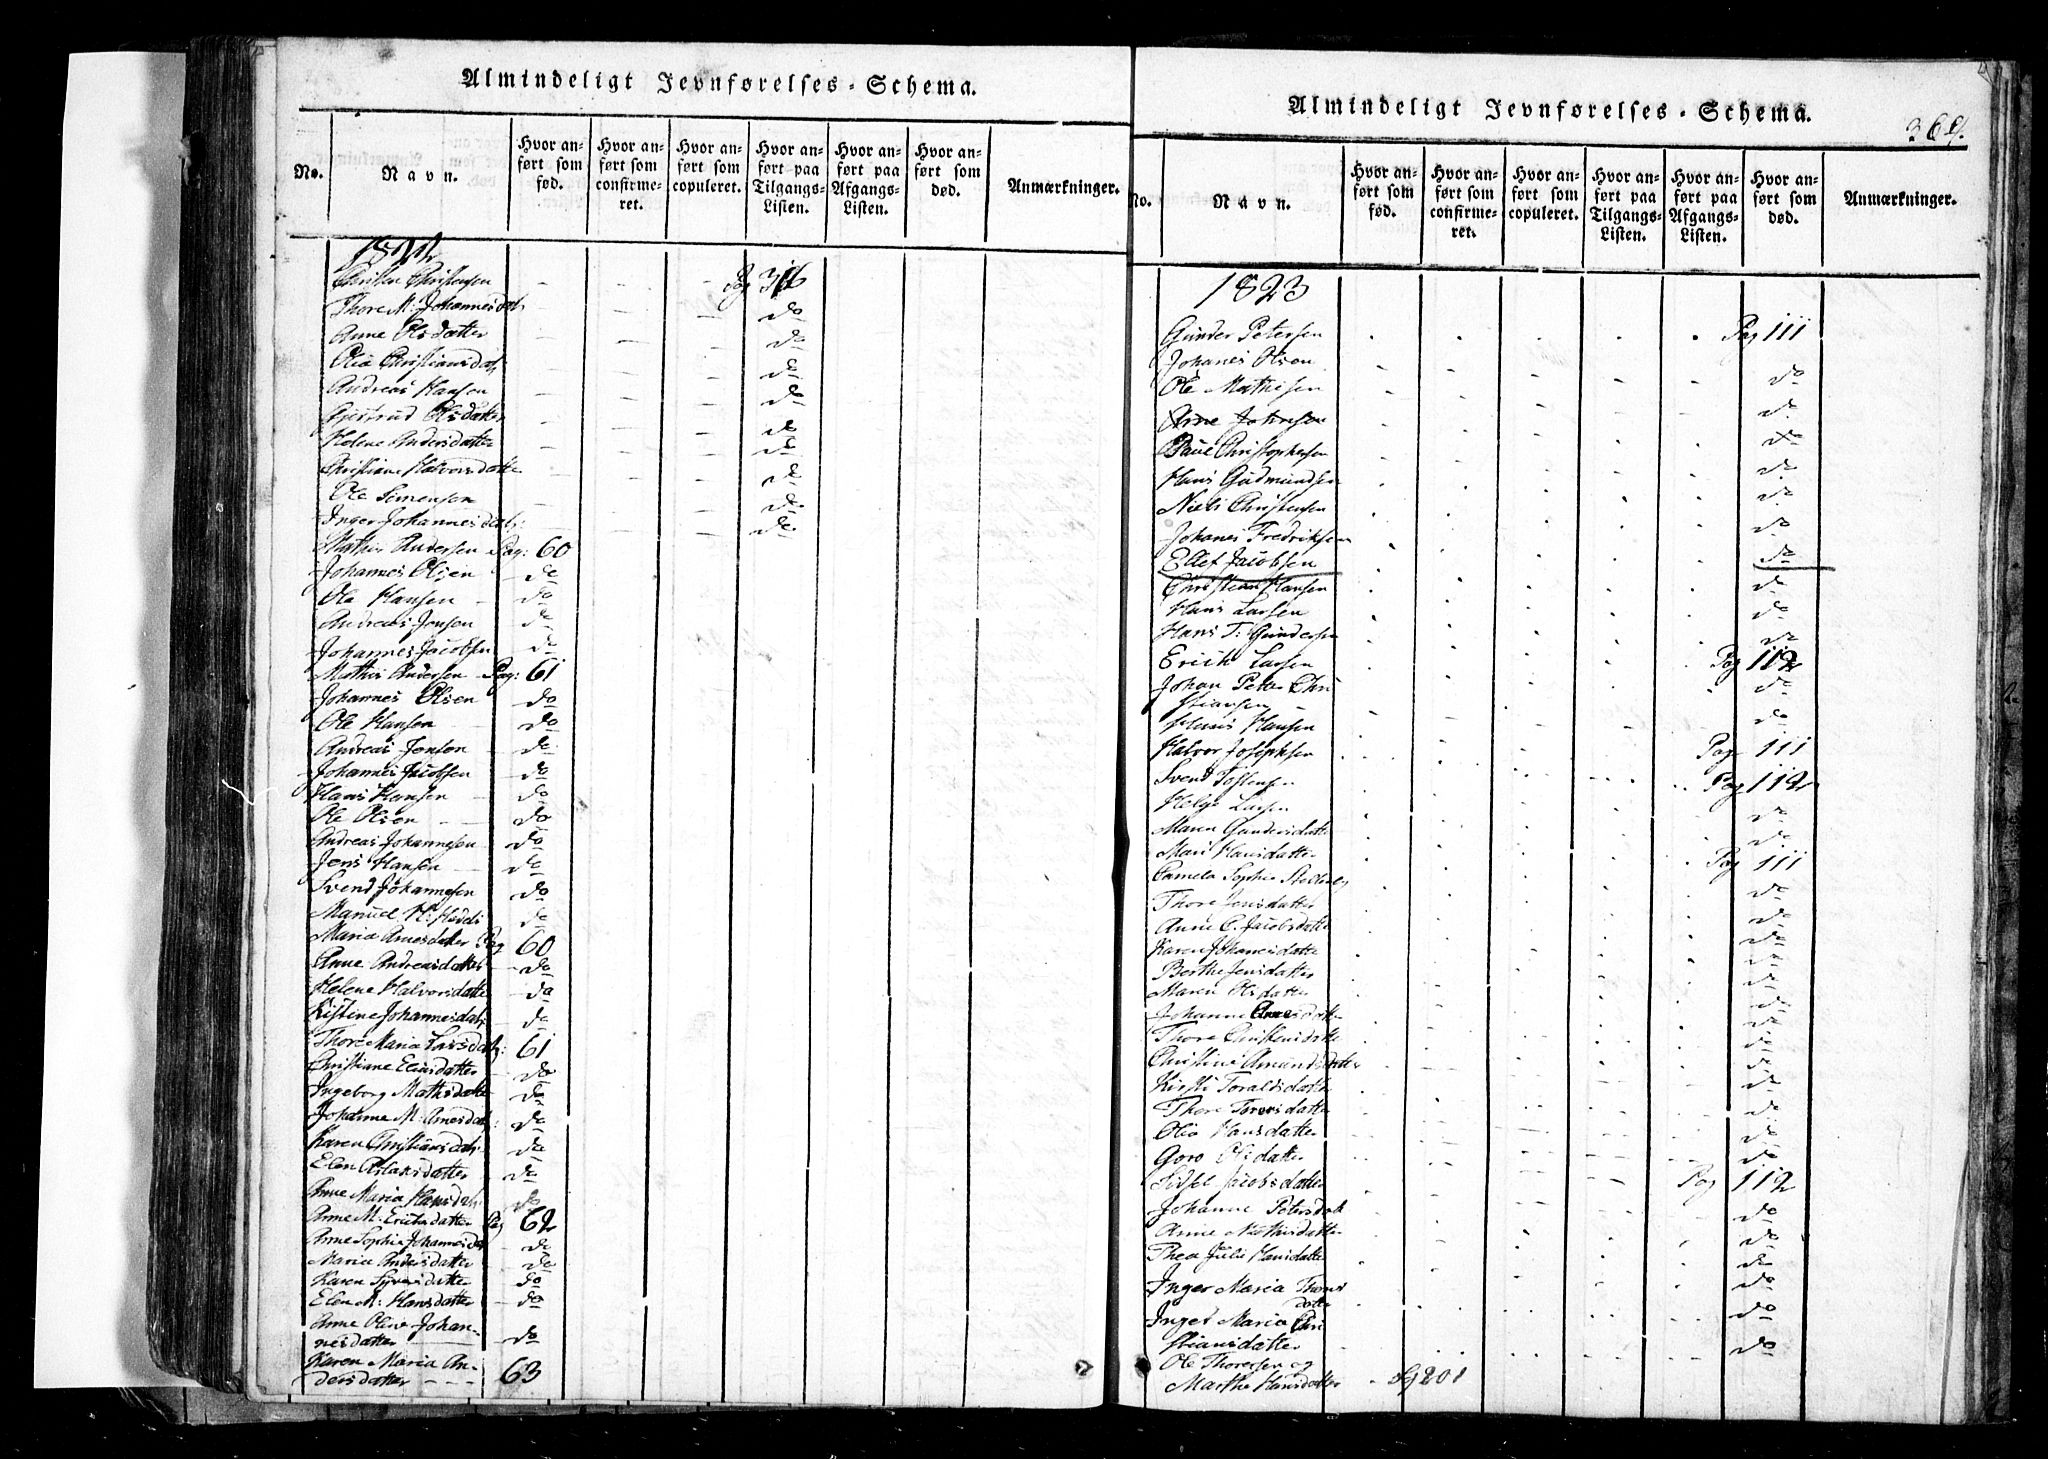 Almindeligt Jevnførelses-Schema.
No.
Navn.
Hvor anført som fød.
Hvor anført som confirmeret.
Hvor anført som copuleret.
Hvor anført paa Tilgangs-Listen.
Hvor anført paa Afgangs-Listen.
Hvor anført som død.
Anmærkninger.
Christen Christensen - - - Pag 316
Thore M: Johannesdat: - - - do
Anne Olsdatter - - - do
Olia Christiansdat: - - - do
Andreas Hansen - - - do
Gjertrud Olsdatter - - - do
Helene Andersdatter - - - do
Christiane Halvorsdatte - - - do
Ole Simensen - - - do
Inger Johannesdat: - - - do
Mathis Andersen Pag: 60
Johannes Olsen - do
Ole Hansen - do
Andreas Jensen - do
Johannes Jacobsen do
Mathis Andersen Pag: 61
Johannes Olsen do
Ole Hansen - do
Andreas Jonson - do
Johannes Jacobsen - do
Hans Hansen - do
Ole Olsen - - do
Andreas Johannesen - do
Jens Hansen - do
Svend Johannesen do
Manuel H: do
Maria Arnesdatter Pag 60
Anne Andreasdatter - do
Helene Halvorsdatte - do
Kistine Johannesdat: - do
Thore Maria Larsdat: 61
Christiane Eliasdatter - do
Ingeborg Mathisdatte do
Johanne M: Arnesdat: do
Karen Christiansdat: do
Elen Aslaksdatter do
Anne Maria Hansdat: do
Anne M: Erichsdatter Pag 62
Anne Sophie Johannesdat do
Maria Andersdatter do
Karen Syversdatter do
Elen M: Hansdatter - do
Anne Oline Johan-
nesdatter do
Karen Maria An-
dersdatter - - - 63
Almindeligt Jevnførelses-Schema.
No.
Navn.
Hvor anført som fød.
Hvor anført som confirmeret.
Hvor anført som copuleret.
Hvor anført paa Tilgangs-Listen.
Hvor anført paa Afgangs-Listen.
Hvor anført som død.
Anmærkninger.
1823
Gunder Petersen Pag 111
Johanes Olsen do
Ole Mathisen do
Arne Johnsen do
Paul Christophersen do
Hans Gudmundsen do
Niels Christensen do
Johanes Fredriksen do
Ellef Jacobsen
Christian Hansen do
Hans Larsen do
Hans T: Gundersen do
Erich Larsen Pag 112
Johan Peter Chri
stiansen do
Hans Hansen do
Halvor Josephsen Pag 111
Svend Tostensen Pag 112
Helge Larsen do
Maren Gundersdatte do
Mari Hansdatter Pag 111
Pamela Sophie do
Thore Jensdatter do
Anne C. Jacobsdatte do
Karen Johanesdatter do
Berthe Jensdatter do
Maren Olsdatter do
Johanne Arnesdatte do
Thore Christensdatte do
Christine Amundsdatter do
Kirsti Toraldsdatte do
Thore Toresdatter do
Olia Hansdatter do
Goro Olsdatter do
Sidsel Jacobsdatter Pag 112
Johanne Petersdat do
Anne Mathisdatter do
Thea Julie Hansdatte do
Inger Maria Thores
datter do
Inger Maria Chri
stiansdatter do
Ole Thoresen og
Marthe Hansdatter - Pag 201